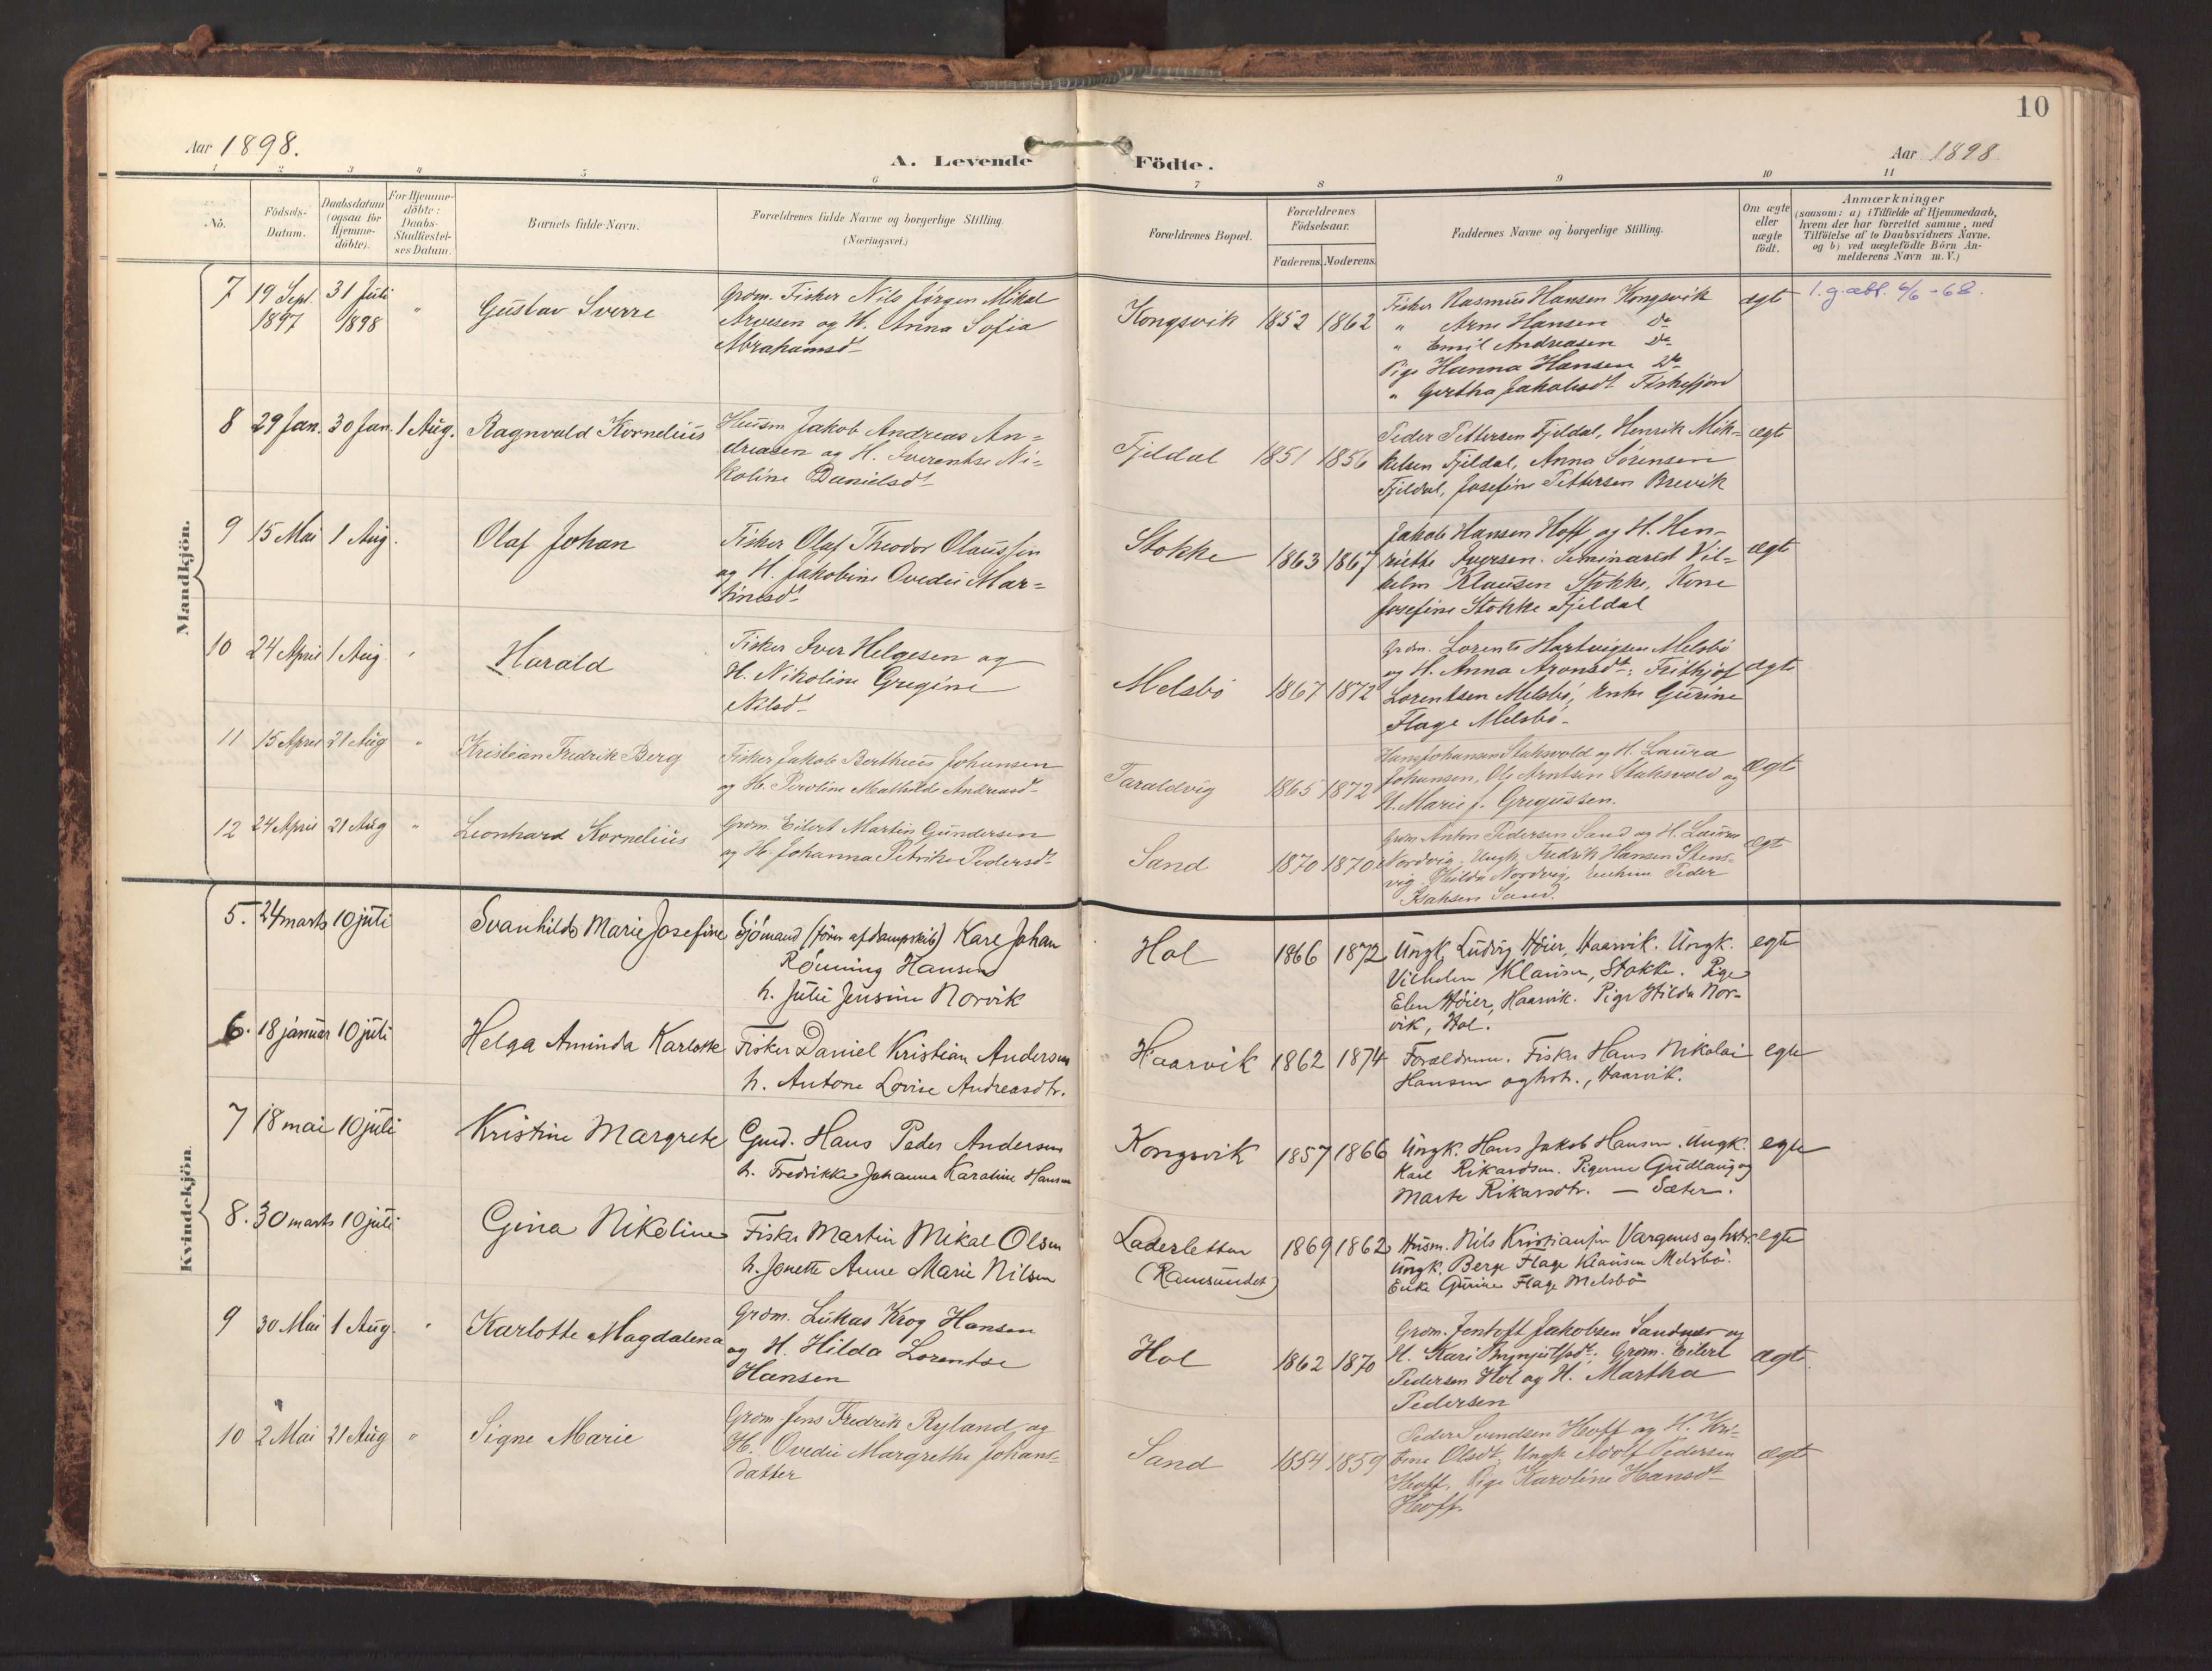 10
Aar 1898.
A. Levende Födte.
Aar 1898.
1 2 3 4 5 6 7 8 9 10 11
No.
Födsels-Datum.
Daabsdatum (ogsaa for Hjemme-döbte).
For Hjemme-döbte: Daabs-Stadfæstel-ses Datum.
Barnets fulde Navn.
Forældrenes fulde Navne og borgerlige Stilling.
(Næringsvei.)
Forældrenes Bopæl.
Forældrenes Födselsaar.
Faderens. Moderens.
Faddernes Navne og borgerlige Stilling.
Om ægte eller uægte födt.
Anmærkninger
(saasom: a) i Tilfælde af Hjemmedaab, hvem der har forrettet samme, med Tilföielse af to Daabsvidners Navne, og b) ved uægtefödte Börn An-melderens Navn m. V.)
Mandkjön.
7 19 Sept. 1897 31 Juli 1898 " Gustav Sverre
Grdm. Fisker Nils Jörgen Mikal
Arvesen og H. Anna Sofia
Abrahamsdt
Kongsvik 1852 1862
Fisker Rasmus Hansen Kongsvik
" Arne Hansen do
" Emil Andreasen do
Pige Hanna Hansen do
" Gertha Jakobsdt Fiskefjord
ægte
1. g. att. 6/6-68.
8 29 Jan. 30 Jan. 1 Aug. Ragnvald Kornelius
Husm Jakob Andreas An=
dreasen og H. Iverentse Ni=
koline Danielsdt
Fjeldal 1851 1856
Peder Pettersen Fjeldal, Henrik Mik=
kelsen Fjeldal, Anna Sörensen
Fjeldal, Josefine Pettersen Brevik
ægte
9 15 Mai 1 Aug. Olaf Johan
Fisker Olaf Theodor Olaussen
og H. Jakobine Ovedie Mar=
tinesdt
Stokke 1863 1867
Jakob Hansen Hoff og H. Hen=
riette Iversen. Seminarist Vil=
helm Klausen Stokke, Kone
Josefine Stokke Fjeldal
ægte
10 24 April 1 Aug " Harald
Fisker Iver Helgesen og
H. Nikoline Gregine
Nilsdt
Melsbö 1867 1872
Grdm. Lorents Hartvigsen Melsbö
og H. Anna Aronsdt; Frithjof
Lorentsen Melsbö, Enke Gurine
Flage Melsbö
ægte
11 15 April 21 Aug " Kristian Fredrik Berg
Fisker Jakob Bertheus Johansen
og H. Peroline Mathilde Andreasdt
Taraldvig 1865 1872
Hans Johansen Staksvold og H. Laura
Johansen, Ole Arntsen Staksvold og
H. Marie J. Gregussen.
ægte
12 24 April 21 Aug " Leonhard Kornelius
Grdm. Eilert Martin Gundersen
og H. Johanna Petrikke Pedersdt
Sand 1870 1870
Grdm Anton Pedersen Sand og H. Laura
Nordvig. Ungk. Fredrik Hansen Stens-
vig Hilda Nordvig, Enkem Peder
Isaksen Sand.
ægte
Kvindekjön.
5. 24 marts 10 juli Svanhild Marie Josefine
Sjömand (förer af dampskib) Karl Johan
Rönning Hansen
h. Julie Jensine Norvik
Hol 1866 1872
Ungk. Ludvig Höier, Haarvik. Ungk.
Vilhelm Klausen, Stokke. Pige
Elen Höier, Haarvik. Pige Hilda Nor-
vik, Hol.
egte
6. 18 januar 10 juli Helga Aminda Karlotte
Fisker Daniel Kristian Andersen
h. Antone Lovise Andreasdtr.
Haarvik 1862 1874
Forældrene. Fisker Hans Nikolai
Hansen og hstr., Haarvik.
egte
7 18 mai 10 juli Kristine Margrete
Gmd. Hans Peder Andersen
h. Fredrikke Johanna Karoline Hansen
Kongsvik 1857 1866
Ungk. Hans Jakob Hansen. Ungk.
Karl Rikardsen. Pigerne Gudlaug og
Marte Rikardstr. — Sæter.
egte
8. 30 marts 10 juli Gina Nikoline
Fisker Martin Mikal Olsen
h. Jonette Anne Marie Nilsen
Laderletten
(Ramsundet)
1869 1862
Husm. Nils Kristiansen Vargenes og hstr.
Ungk. Berge Flage Klausen Melsbö.
Enke Gurine Flage Melsbö
egte
9 30 Mai 1 Aug. " Karlotte Magdalena
Grdm. Lukas Krog Hansen
og H. Hilda Lorentse
Hansen
Hol 1862 1870
Grdm. Jentoft Jakobsen Sandnes og
H. Kari Brynjulfsdt; Grdm. Eilert
Pedersen Hol og H. Martha
Pedersen
ægte
10 2 Mai 21 Aug " Signe Marie
Grdm. Jens Fredrik Ryland og
H. Ovedie Margrethe Johans-
datter
Sand 1854 1859
Peder Svendsen Hoff og H. Kri-
stine Olsdt, Ungk Adolf Pedersen
Hoff, Pige Karoline Hansdt
Hoff.
ægte